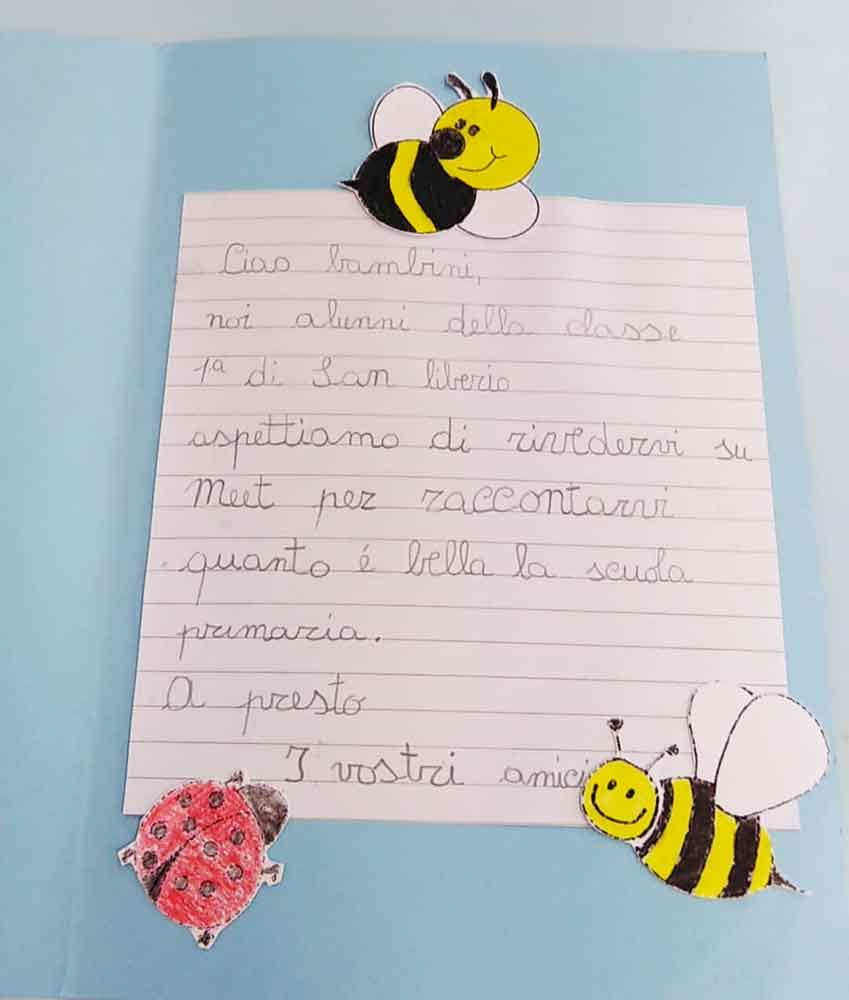 Ciao bambini,
noi alunni della classe
1ª di San liberio
aspettiamo di rivedervi su
Meet per raccontarvi
quanto é bella la scuola
primaria.
A presto
I vostri amici